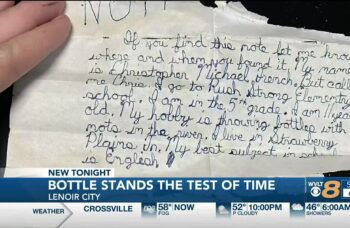 NOTE
If you find this note let me know
where and when you found it. My name
is Christopher Michael French, but call
me Chris. I go to Rush Strong Elementry
school. I am in the 5th grade. I am 11 years
old. My hobby is throwing bottles with
nots in the river. I live in Strawberry
Plains Tn. My best subject in school
is English
NEW TONIGHT
BOTTLE STANDS THE TEST OF TIME
LENOIR CITY
WVLT 8
WEATHER
CROSSVILLE
58° NOW
FOG
52° 10:00PM
P CLOUDY
46° 6:00AM
SHOWERS